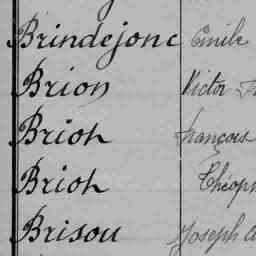 Brindejonc Emile
Brion Victor
Brion François
Brion Théoph
Brisou Joseph